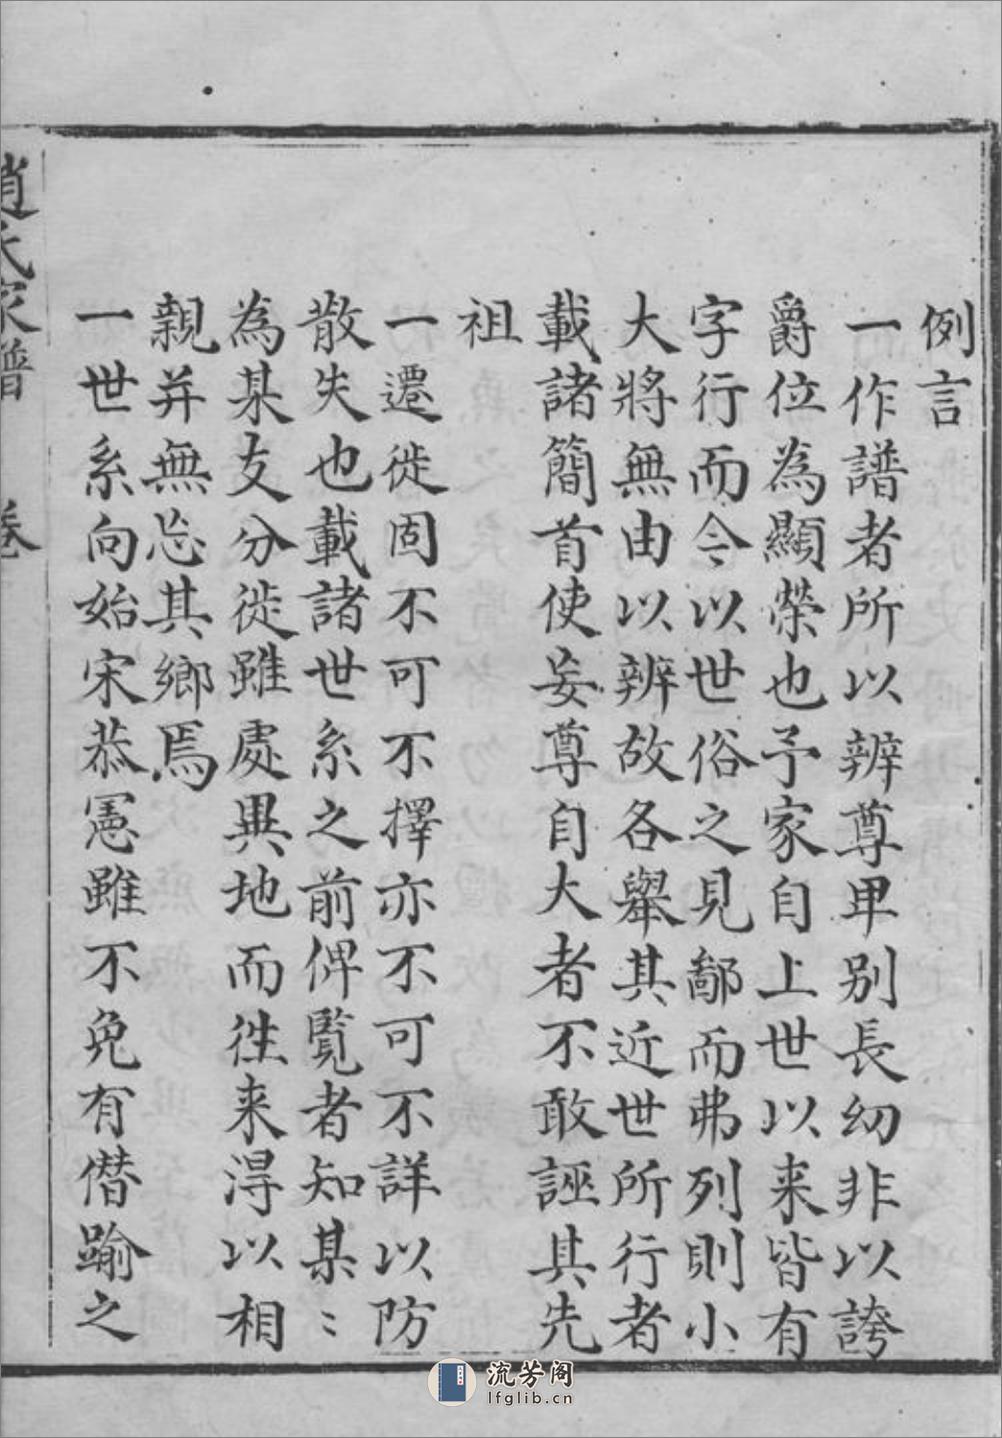 例言
一作譜者所以辨尊卑别長幼非以誇
爵位為顯榮也予家自上世以来皆有
字行而今以世俗之見鄙而弗列則小
大將無由以辨故各舉其近世所行者
載諸簡首使妄尊自大者不敢誣其先
祖
一遷徙固不可不擇亦不可不詳以防
散失也載諸世系之前俾覧者知某〻
為某支分徙雖處異地而徃来淂以相
親并無忘其鄉焉
一世系向始宋恭憲雖不免有僭踰之
趙氏家譜 卷
流芳阁
lfglib.cn